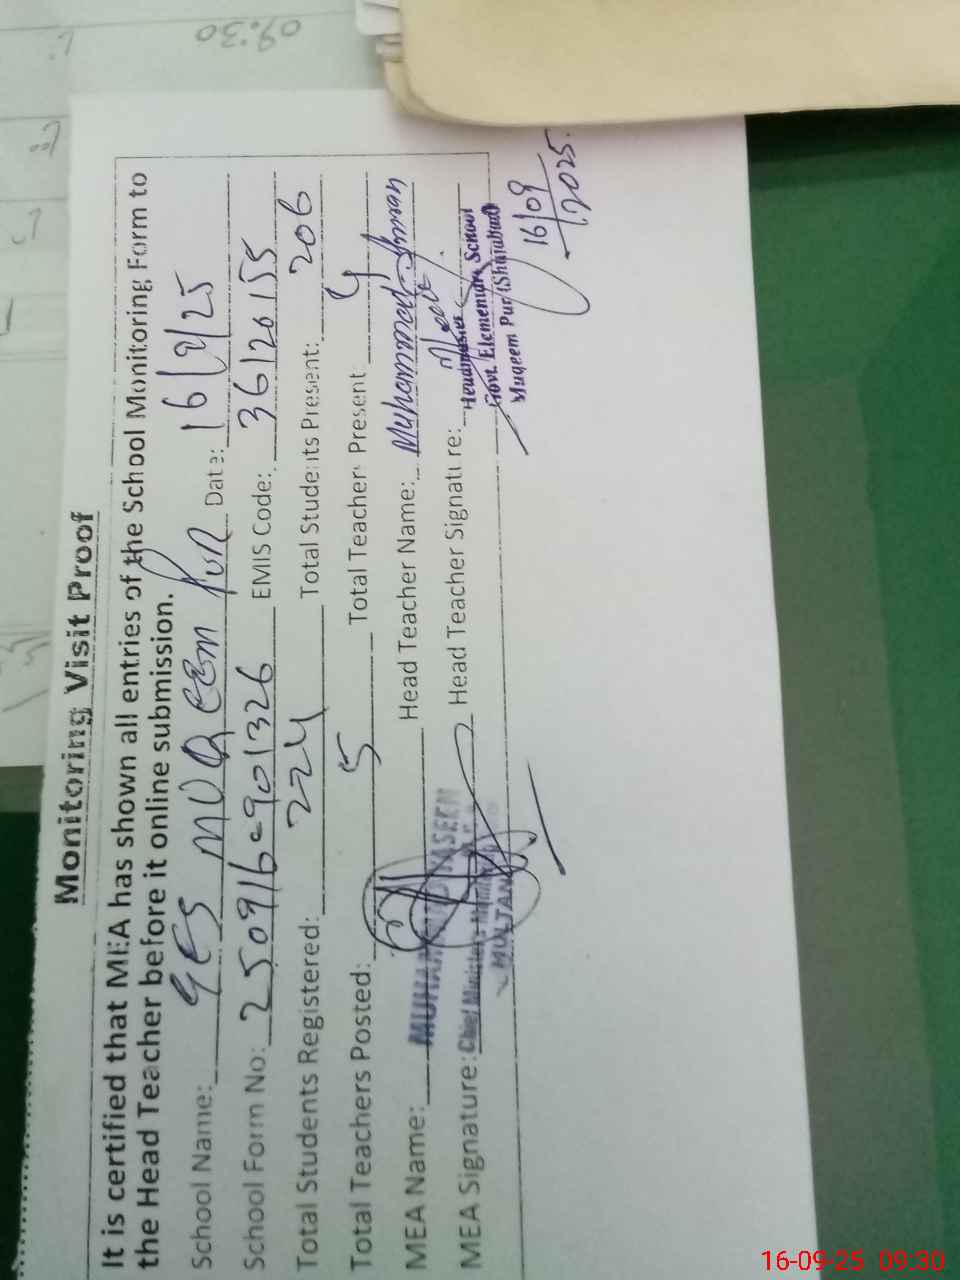 09:30
Monitoring Visit Proof
It is certified that MEA has shown all entries of the School Monitoring Form to
the Head Teacher before it online submission.
School Name: GES MUQEEM PUR Date: 16/9/25
School Form No: 250916-901326 EMIS Code: 36120155
Total Students Registered: 224 Total Students Present: 206
Total Teachers Posted: 5 Total Teachers Present: 4
MEA Name: MUHAMMAD Head Teacher Name: Muhammad
MEA Signature: Chief Minister's Head Teacher Signature:
MULTAN
Headmaster
Govt. Elementary School
Muqeem Pur (Shujabad)
16/09/2025.
16-09-25 09:30